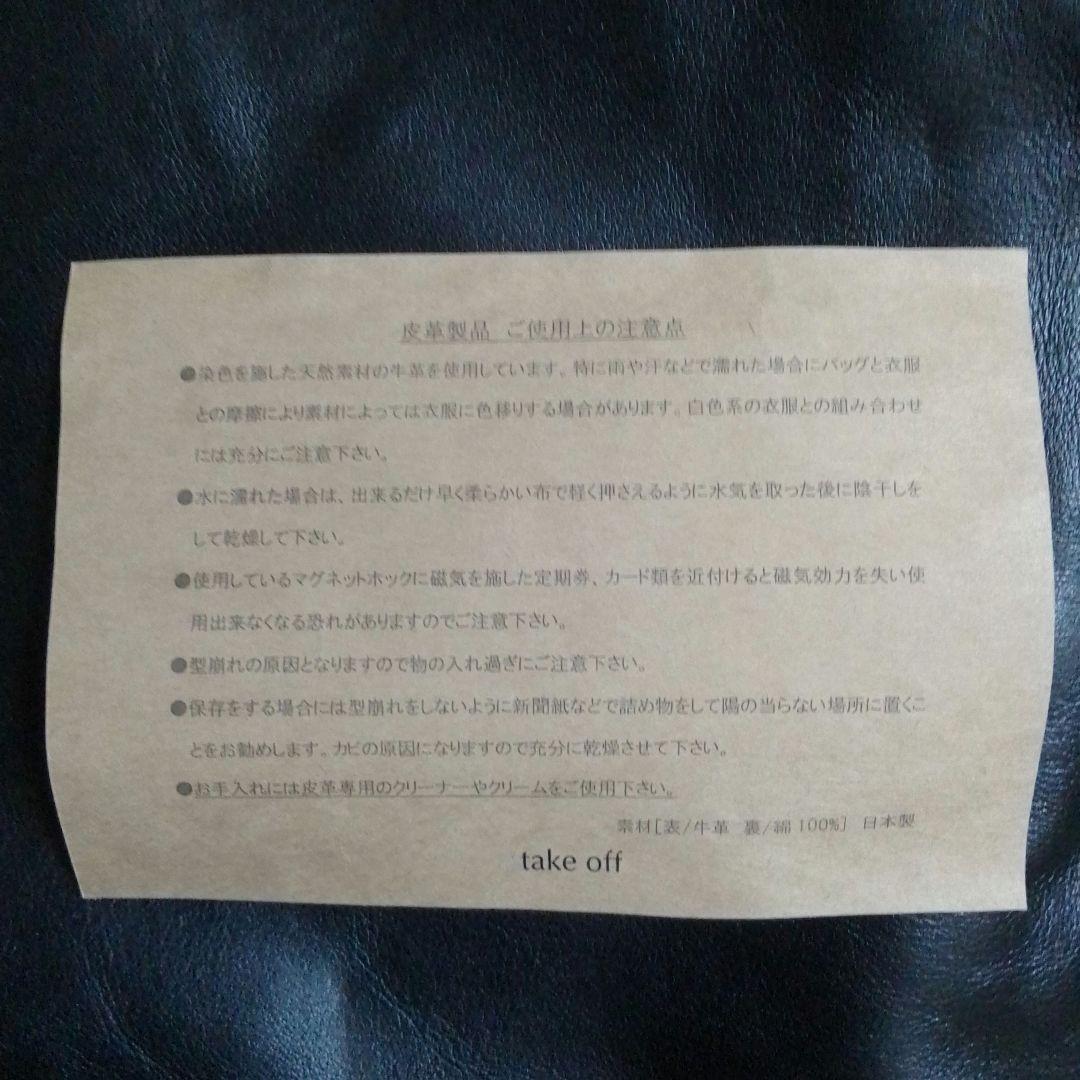 皮革製品 ご使用上の注意点
●染色を施した天然素材の牛革を使用しています。特に雨や汗などで濡れた場合にバッグと衣服
との摩擦により素材によっては衣服に色移りする場合があります。白色系の衣服との組み合わせ
には充分にご注意下さい。
●水に濡れた場合は、出来るだけ早く柔らかい布で軽く押さえるように水気を取った後に陰干しを
して乾燥して下さい。
●使用しているマグネットホックに磁気を施した定期券、カード類を近付けると磁気効力を失い使
用出来なくなる恐れがありますのでご注意下さい。
●型崩れの原因となりますので物の入れ過ぎにご注意下さい。
●保存をする場合には型崩れをしないように新聞紙などで詰め物をして陽の当らない場所に置くこ
とをお勧めします。カビの原因になりますので充分に乾燥させて下さい。
●お手入れには皮革専用のクリーナーやクリームをご使用下さい。
素材[表/牛革 裏/綿100%] 日本製
take off